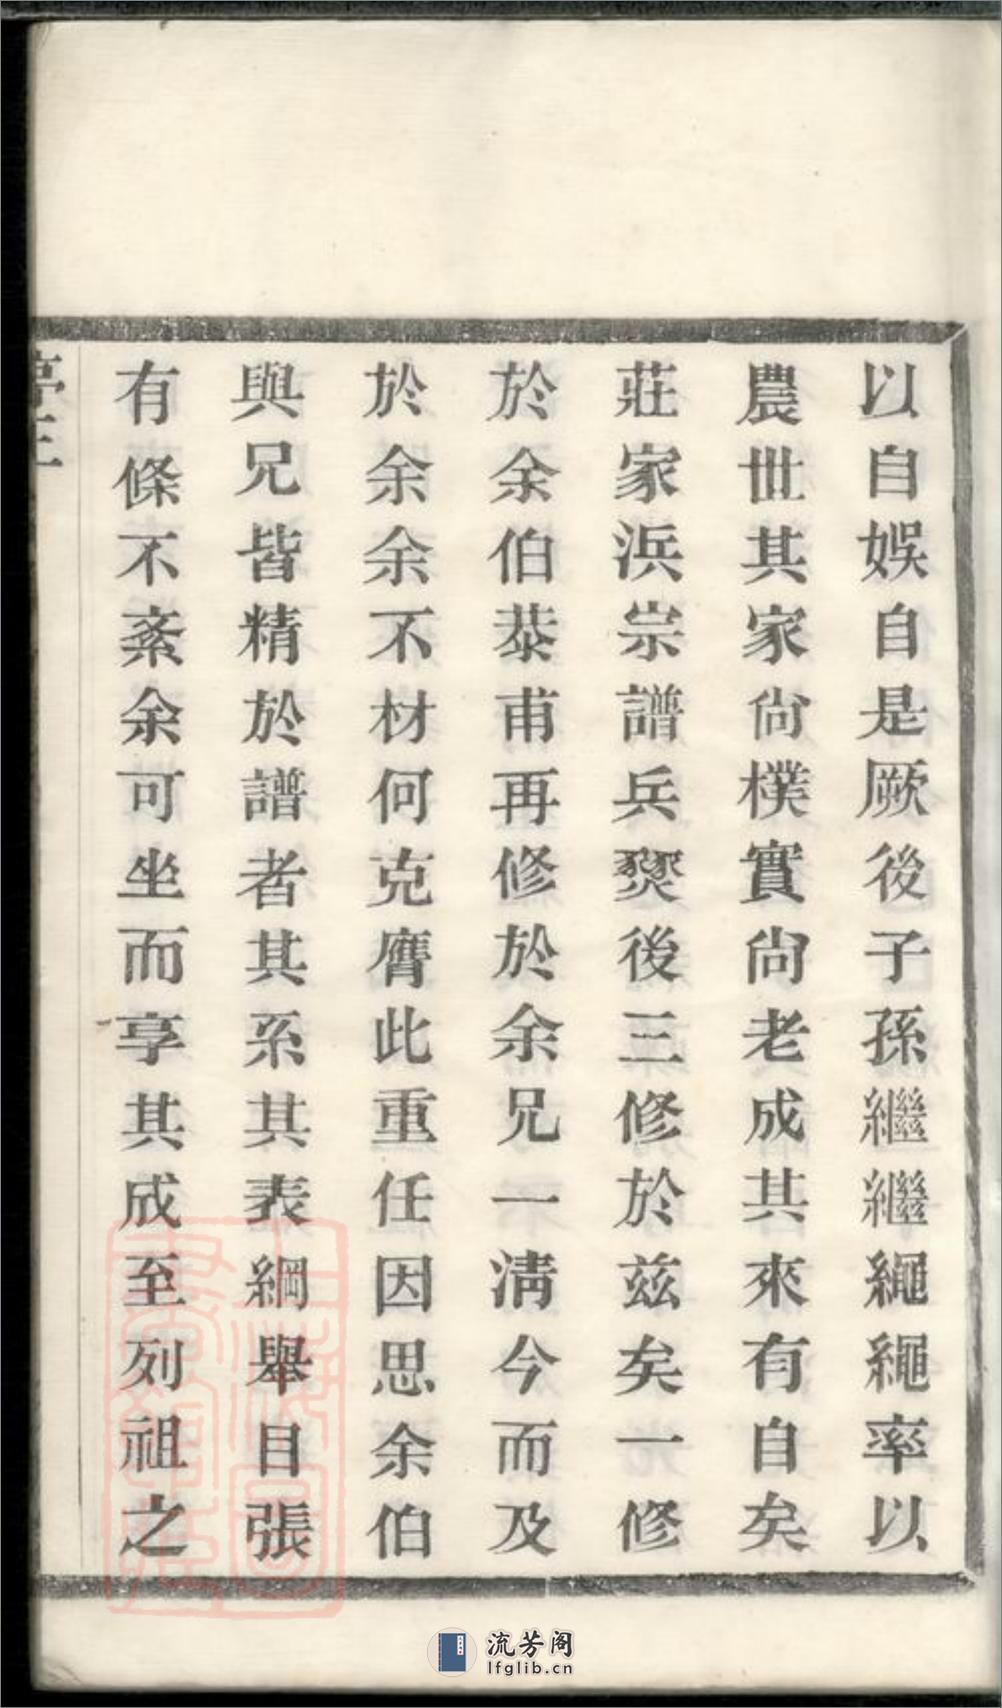 以自娛自是厥後子孫繼繼繩繩率以
農世其家尙樸實尙老成其來有自矣
莊家浜宗譜兵燹後三修於茲矣一修
於余伯恭甫再修於余兄一淸今而及
於余余不材何克膺此重任因思余伯
與兄皆精於譜者其系其表綱舉目張
有條不紊余可坐而享其成至列祖之
上海圖書館藏
流芳阁
lfglib.cn